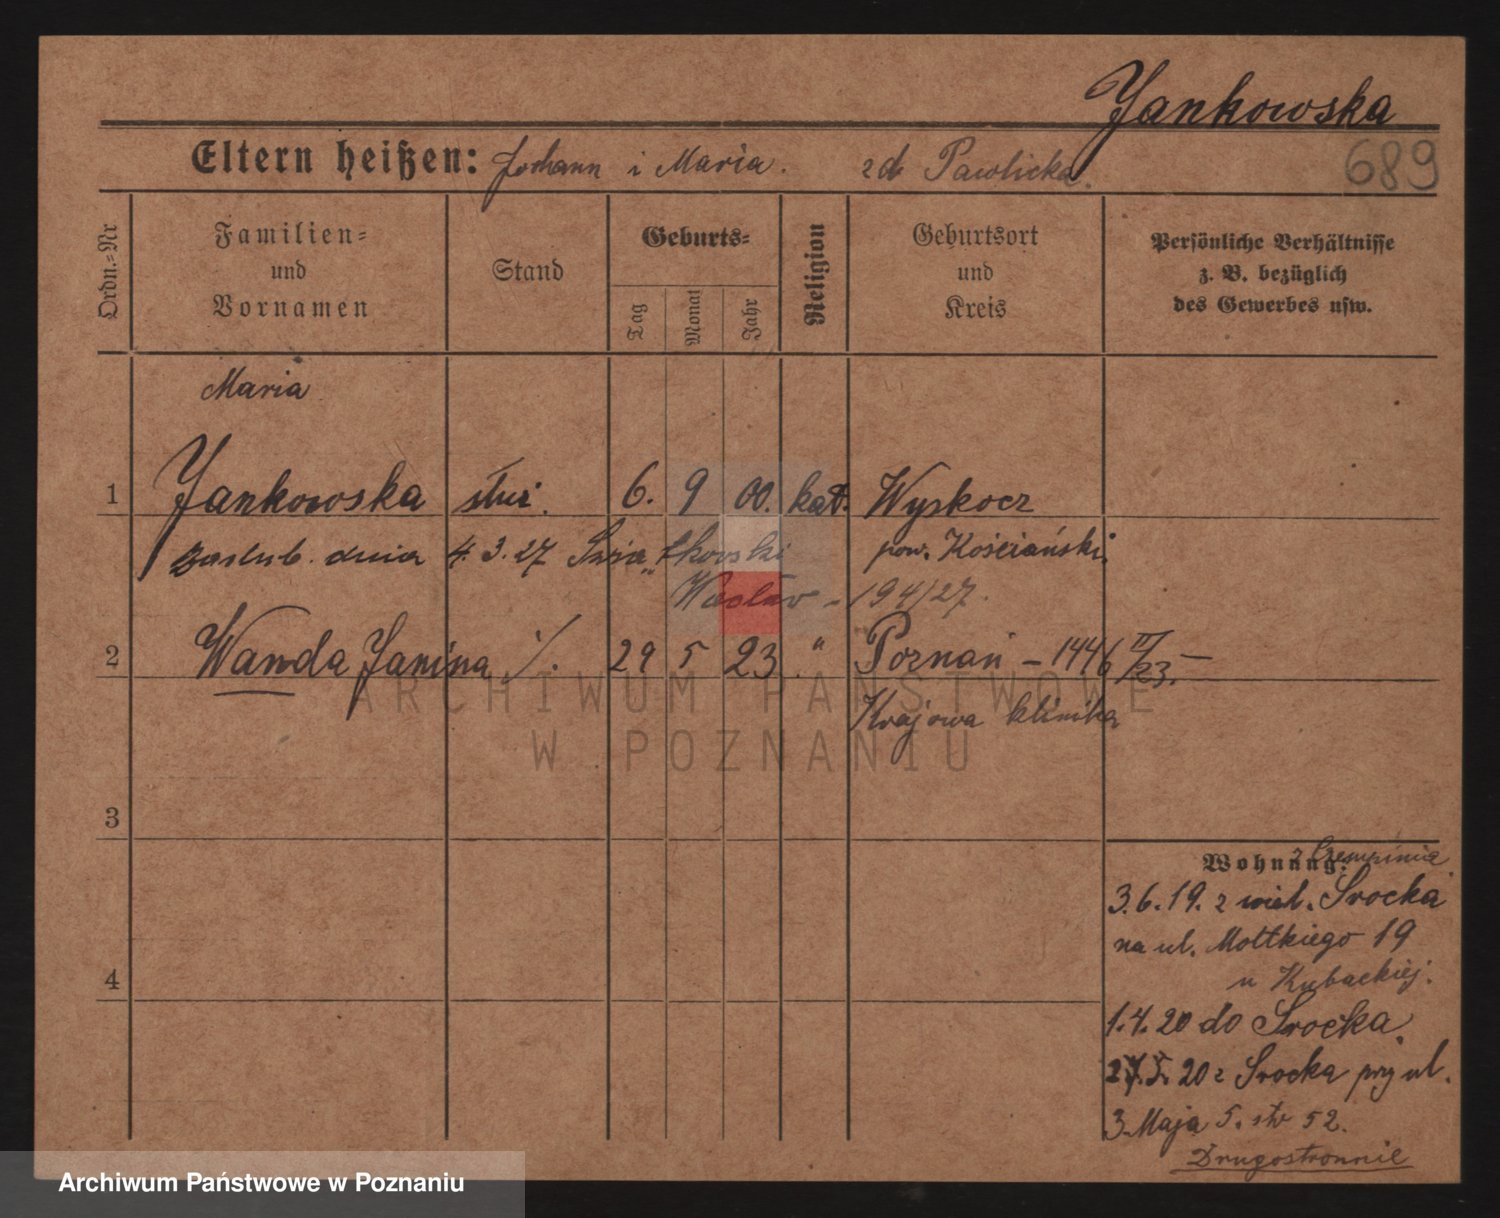 Jankowska
Eltern heißen: Johann i Maria. zd Pawlicka.
689
Ordn.=Nr
Familien=
und
Vornamen
Stand
Geburts=
Tag
Monat
Jahr
Religion
Geburtsort
und
Kreis
Persönliche Verhältnisse
z. B. bezüglich
des Gewerbes usw.
Maria
1 Jankowska służ. 6. 9 00. kat. Wyskocz
zaslub. dnia 4. 3. 27 pow. Kościański.
Wacław - 194/27.
2 Wanda Janina ./. 29 5 23 " Poznań - 1446 II/23. -
Krajowa klinika
ARCHIWUM PAŃSTWOWE
W POZNANIU
3
4
Wohnung:
z Czempinia
3.6.19. z wieł. Srocka
na ul. Moltkiego 19
u Kubackiej.
1.4.20 do Srocka.
20 z Srocka przy ul.
3. Maja 5. 52.
Drugostronnie
Archiwum Państwowe w Poznaniu